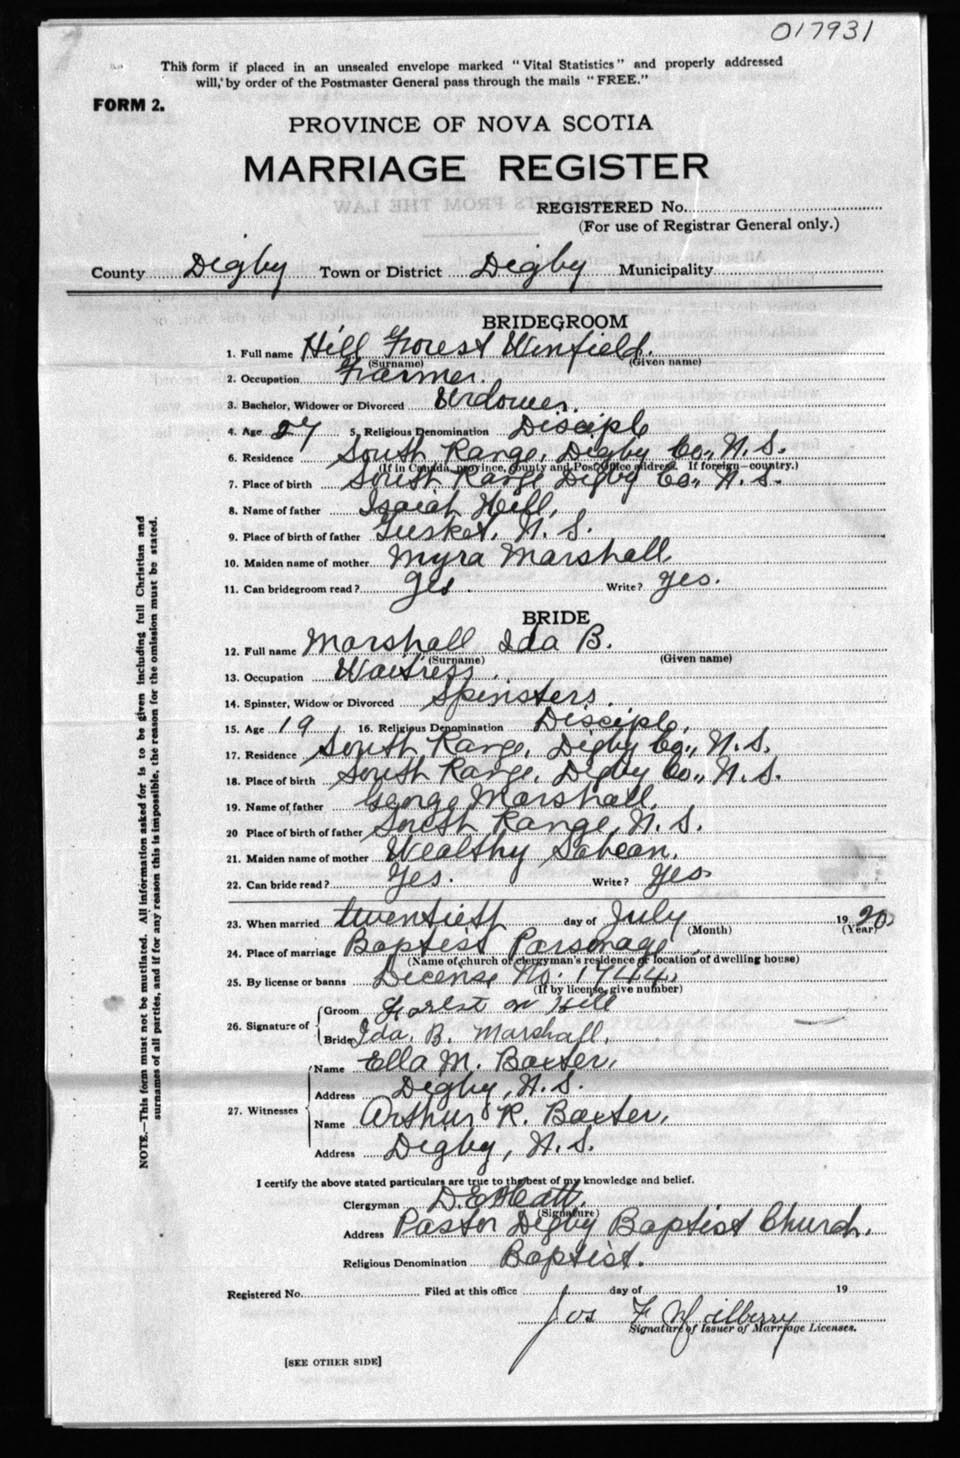 017931
This form if placed in an unsealed envelope marked "Vital Statistics" and properly addressed
will, by order of the Postmaster General pass through the mails "FREE."
FORM 2.
PROVINCE OF NOVA SCOTIA
MARRIAGE REGISTER
REGISTERED No.
(For use of Registrar General only.)
County Digby Town or District Digby Municipality
BRIDEGROOM
1. Full name Hill Forest Winfield.
(Surname) (Given name)
2. Occupation Farmer.
3. Bachelor, Widower or Divorced Widower.
4. Age 27 5. Religious Denomination Disciple
6. Residence South Range, Digby Co., N.S.
(If in Canada, province, county and Post Office address. If foreign—country.)
7. Place of birth South Range Digby Co., N.S.
8. Name of father Isaiah Hill,
9. Place of birth of father Tusket, N.S.
10. Maiden name of mother Myra Marshall
11. Can bridegroom read? Yes. Write? yes.
BRIDE
12. Full name Marshall Ida B.
(Surname) (Given name)
13. Occupation Waitress.
14. Spinster, Widow or Divorced Spinsters.
15. Age 19 16. Religious Denomination Disciple,
17. Residence South Range, Digby Co., N.S.
18. Place of birth South Range, Digby Co., N.S.
19. Name of father George Marshall,
20 Place of birth of father South Range, N.S.
21. Maiden name of mother Wealthy Sabean,
22. Can bride read? Yes. Write? Yes
23. When married twentieth day of July 1920
(Month) (Year)
24. Place of marriage Baptist Parsonage,
(Name of church or clergyman's residence or location of dwelling house)
25. By license or banns License No. 1744,
(If by license, give number)
26. Signature of Groom Forest W Hill
Bride Ida. B. Marshall,
27. Witnesses Name Ella M. Baxter,
Address Digby, N.S.
Name Arthur R. Baxter,
Address Digby, N.S.
I certify the above stated particulars are true to the best of my knowledge and belief.
Clergyman D.E. Hatt,
(Signature)
Address Pastor Digby Baptist Church,
Religious Denomination Baptist.
Registered No. Filed at this office day of 19
Jos F
Signature of Issuer of Marriage Licenses.
[SEE OTHER SIDE]
NOTE.—This form must not be mutilated. All information asked for is to be given including full Christian and
surnames of all parties, and if for any reason this is impossible, the reason for the omission must be stated.